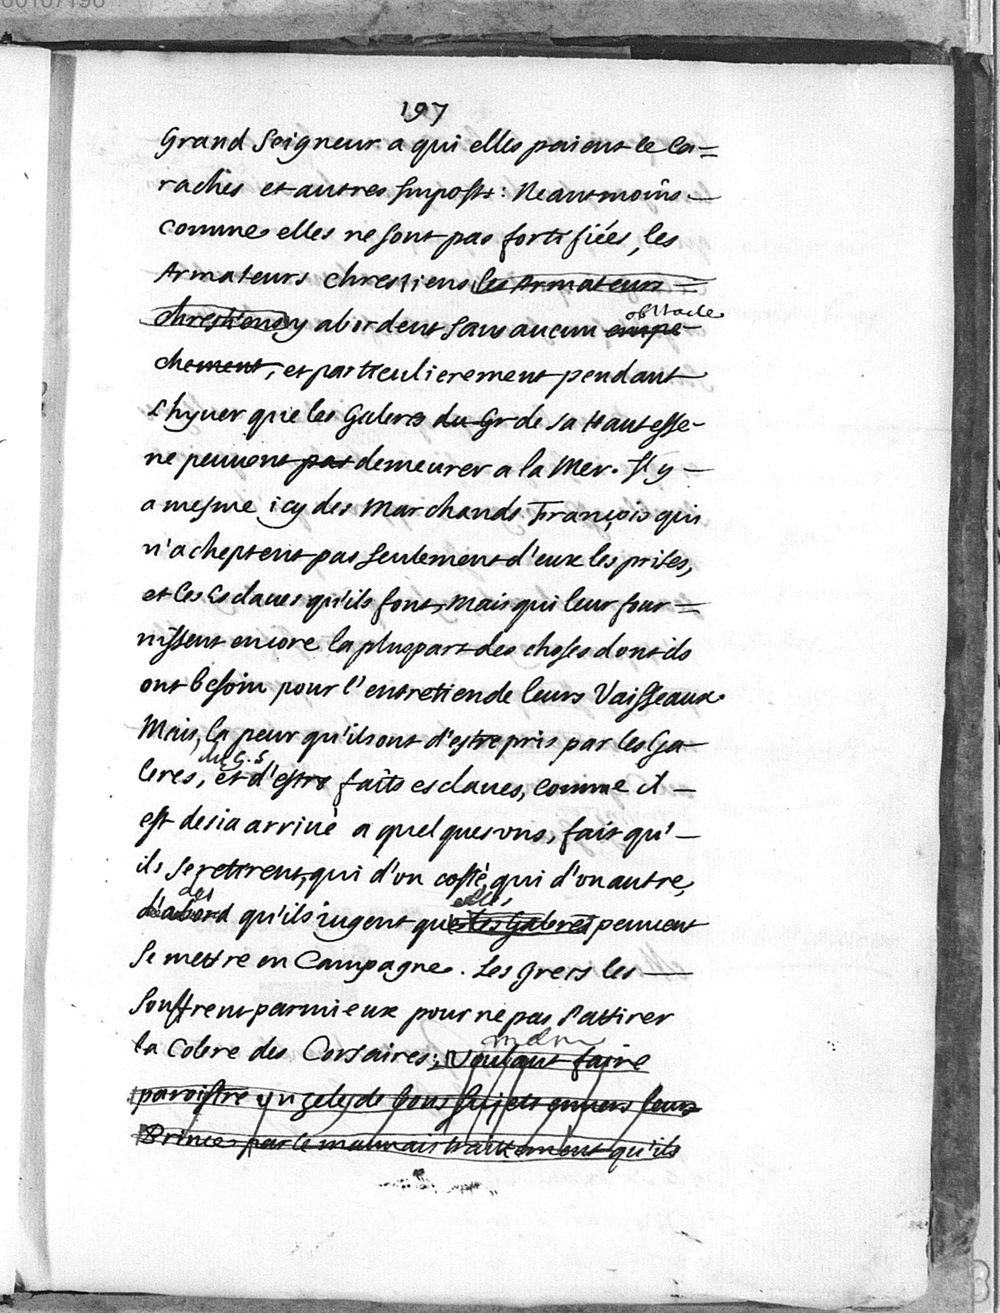 197
Grand Seigneur a qui elles paient le ca=
raches et autres Imposts: Neantmoins
comme elles ne sont pas fortifiées, les
Armateurs chrestiens les Armateurs
chrestiens y abordent sans aucun empe=
obstacle
chement, et particulierement pendant
l'hyver que les Galeres du Gr de sa Hautesse
ne peuvent pas demeurer a la Mer. Il y
a mesme icy des Marchands François qui
n'acheptent pas seulement d'eux les prises,
et les Esclaves qu'ils font, Mais qui leur four=
nissent encore la pluspart des choses dont ils
ont besoin pour l'entretien de leurs Vaisseaux.
Mais, la peur qu'ils ont d'estre pris par les Ga
du G.S.
leres, et d'estre faits esclaves, comme il
est desia arrivé a quelques vns, fait qu'
ils se retirent, qui d'vn costé, qui d'vn autre,
dés
elles,
d'abord qu'ils iugent que les Galeres peuvent
se mettre en Campagne. Les Grecs les
souffrent parmi eux pour ne pas s'attirer
la Colere des Corsaires; voulant faire
paroistre vn zele de bons sujets envers leur
Prince par le mauvais traittement qu'ils